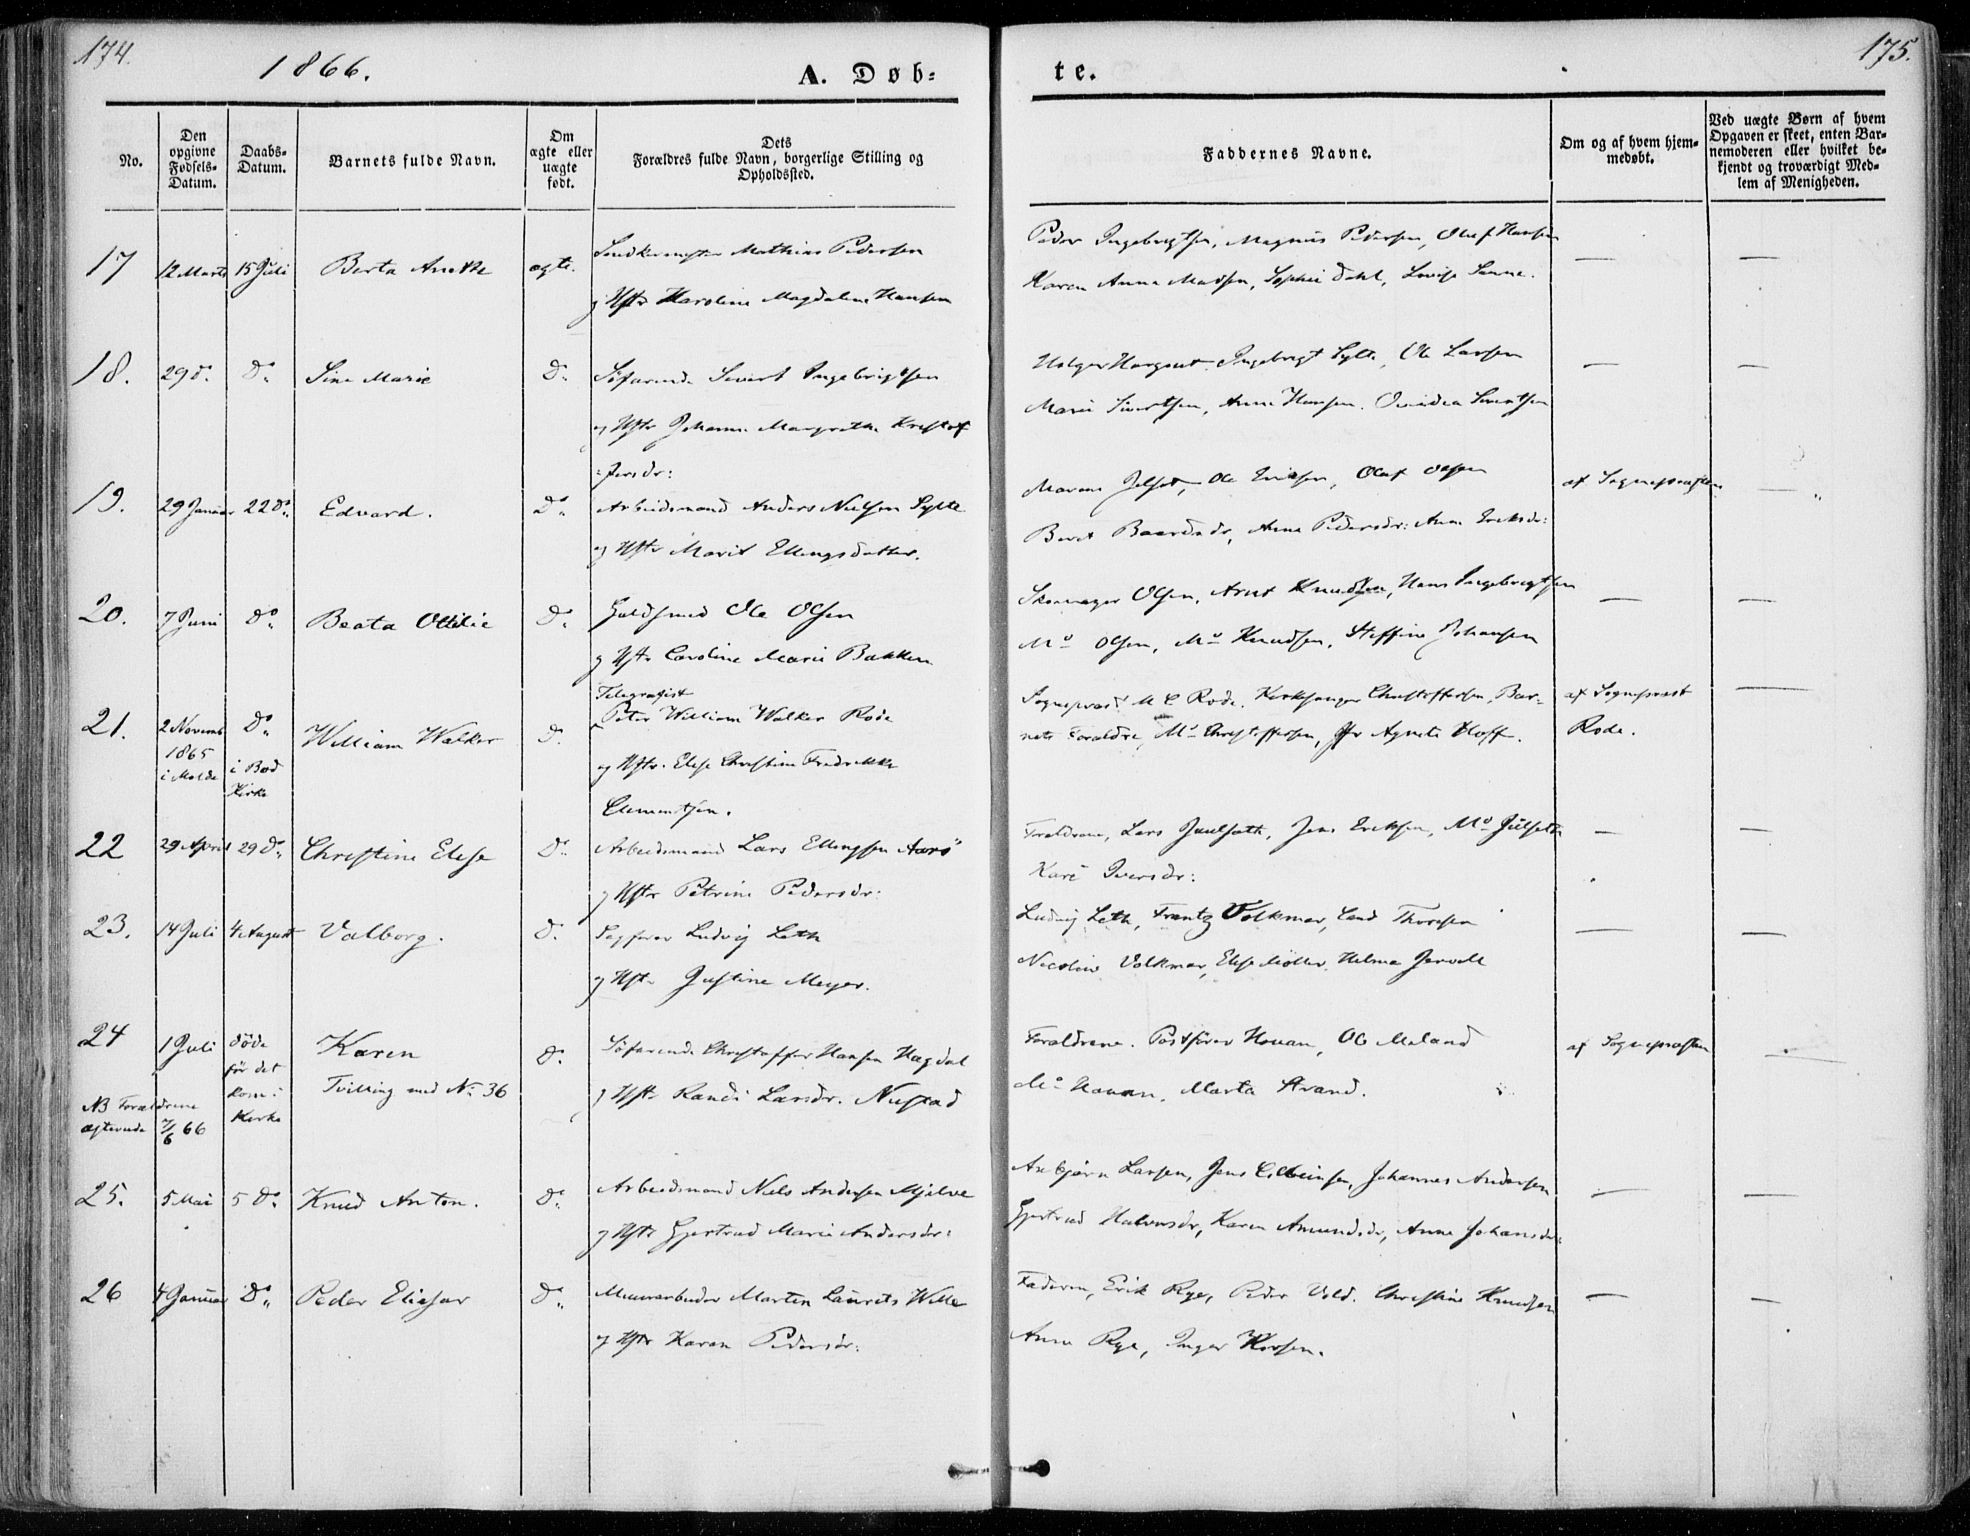 174.
1866.
A. Døb=
te.
175.
No.
Den opgivne Fødsels-Datum.
Daabs-Datum.
Barnets fulde Navn.
Om ægte eller uægte født.
Dets Forældres fulde Navn, borgerlige Stilling og Opholdssted.
Faddernes Navne.
Om og af hvem hjem-
medøbt.
Ved uægte Børn af hvem
Opgaven er skeet, enten Bar-
nemoderen eller hvilket be-
kjendt og troværdigt Med-
lem af Menigheden.
17 12 Marts 15 Juli Berta Anette ægte. Mathias Pedersen
Hstr Karoline Magdaline Hansen
Peder Ingebrigtsen, Magnus Pedersen, Oluf Hansen — —
Karen Anna Madsen, Sophie Dahl, Lovise Sanne.
18. 29 d. Do Sine Marie Do Søfarende Sivert Ingebrigtsen
og Hstr Johanne Margrethe Kristof
fersdr:
Holger Ingebrigt Sylte, Ole Larsen — —
Marie Sivertsen, Anne Hansen. Sivertsen
19. 29 Januar 22 Do Edvard. Do Arbeidsmand Anders Nielsen Sylte
og Hstr Marit Ellingsdatter.
Ole Eriksen, Oluf Olsen af Sognepræsten —
Beret Baardsdr, Anne Pedersdr: Anne Eriksdr:
20. 7 Juni Do Beata Ottilie Do Guldsmed Ole Olsen
og Hstr Caroline Marie Bakken
Skomager Olsen, Arnt Knudsen, Hans Ingebrigtsen — —
Mo Olsen, Mo Knudsen, Steffine Johansen
21. 2 Novemb 1865 i Molde Do i Bod Kirke William Walker Do Telegrafist
Peter William Walker Rode
og Hstr. Elise Christine Fredrikke
Clementsen.
Sognepræst M C Rode, Kirkesanger Christoffersen, Bar- af Sognepræst —
nets Forældre, Mo Christoffersen, Jfr Agnete Hoff. Rode.
22 29 April 29 Do Christine Elise Do Arbeidsmand Lars Ellingsen Aarø
og Hstr Petrine Pedersdr:
Forældrene, Lars Julseth, Jens Eriksen, Mo Julseth — —
Kari Iversdr:
23. 14 Juli 4 August Valborg. Do Sagfører Ludvig Leth
og Hstr Justine Meyer.
Ludvig Leth, Frantz Volkmar, Cand Thoresen — —
Nicoline Volkmar, Elise Møller, Helma Jervell
24 1 Juli døde før det kom i Kirke Karen Do Søfarende Christoffer Hansen Hagdal
Tvilling med No 36 og Hstr Randi Larsdr. Nustad
NB Forældrene
ægteviede 7/6 66
Forældrene. Postfører Houan, Ole Meland af Sognepræsten —
Mo Houan, Marta Strand.
25. 5 Mai 5 Do Knud Anton. Do Arbeidsmand Niels Andersen Mjelve
og Hstr Gjertrud Marie Andersdr:
Anbjørn Larsen, Jens Johannes Andersen — —
Gjertrud Halvorsdr, Karen Amundsdr, Anne Johansdr:
26 4 Januar Do Peder Eliesar Do Murarbeider Morten Laurits Wille
og Hstr Karen Pedersdr:
Faderen, Erik Rye, Peder Vold. Christine Knudsen — —
Anne Rye, Inger Korsen.